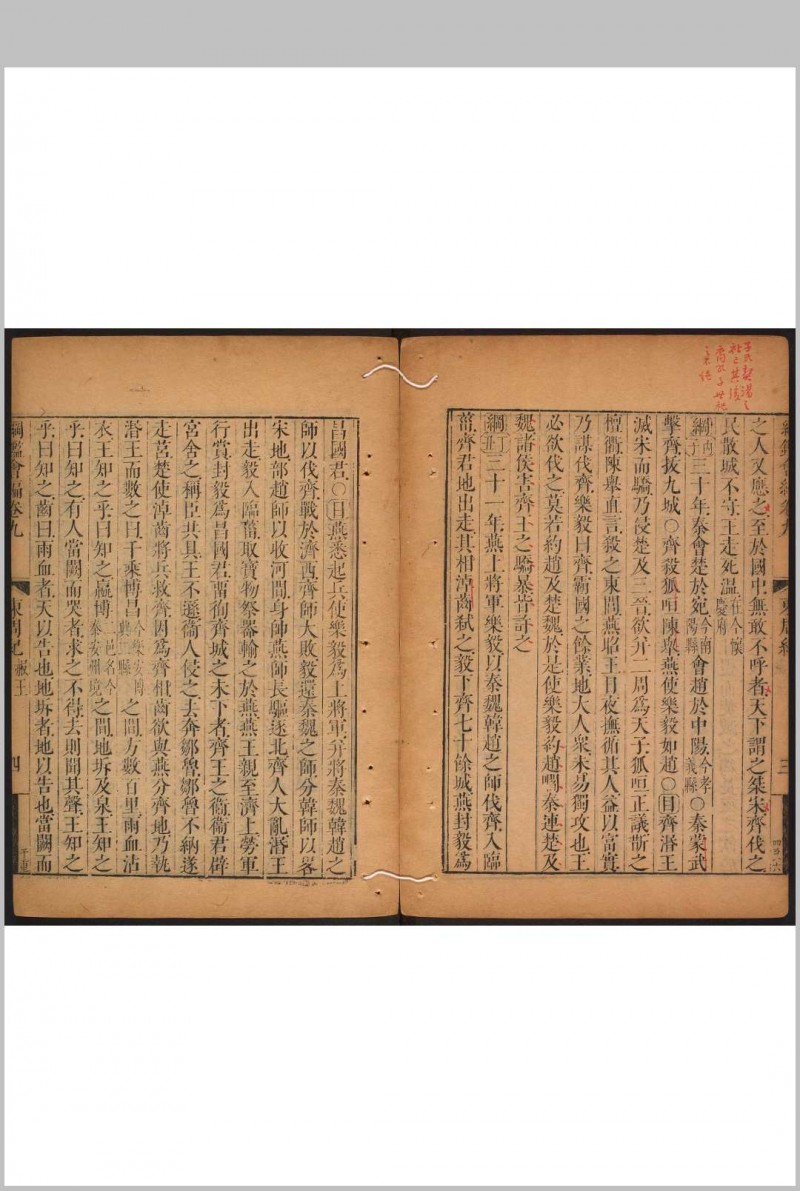 之人又應之至於國中無敢不呼者天下謂之桀宋齊伐之
民散城不守王走死溫在今懷慶府
綱丙子三十年秦會楚於宛今南陽縣會趙於中陽今孝義縣○秦蒙武
擊齊拔九城○齊殺狐咺陳舉燕使樂毅如趙○目齊湣王
滅宋而驕乃侵楚及三晉欲并二周爲天子狐咺正議斮之
檀衢陳舉直言殺之東閭燕昭王日夜撫循其人益以富實
乃謀伐齊樂毅曰齊霸國之餘業地大人衆未易獨攻也王
必欲伐之莫若約趙及楚魏於是使樂毅約趙嚪秦連楚及
魏諸侯害齊王之驕暴皆許之
綱丁丑三十一年燕上將軍樂毅以秦魏韓趙之師伐齊入臨
菑齊君地出走其相淖齒弒之毅下齊七十餘城燕封毅爲
昌國君○目燕悉起兵使樂毅爲上將軍并將秦魏韓趙之
師以伐齊戰於濟西齊師大敗毅還秦魏之師分韓師以畧
宋地部趙師以收河間身帥燕師長驅逐北齊人大亂湣王
出走毅入臨菑取寶物祭器輸之於燕燕王親至濟上勞軍
行賞封毅爲昌國君畱徇齊城之未下者齊王之衞衞君辟
宮舍之稱臣共具王不遜衞人侵之去奔鄒魯鄒魯不納遂
走莒楚使淖齒將兵救齊因爲齊相齒欲與燕分齊地乃執
湣王而數之曰千乘博昌今樂安博興二縣之間方數百里雨血沾
衣王知之乎曰知之嬴博二邑名今泰安州境之間地坼及泉王知之
乎曰知之有人當闕而哭者求之不得去則聞其聲王知之
乎曰知之齒曰雨血者天以告也地坼者地以告也當闕而
綱鑑會編卷九 東周紀 赧王 四